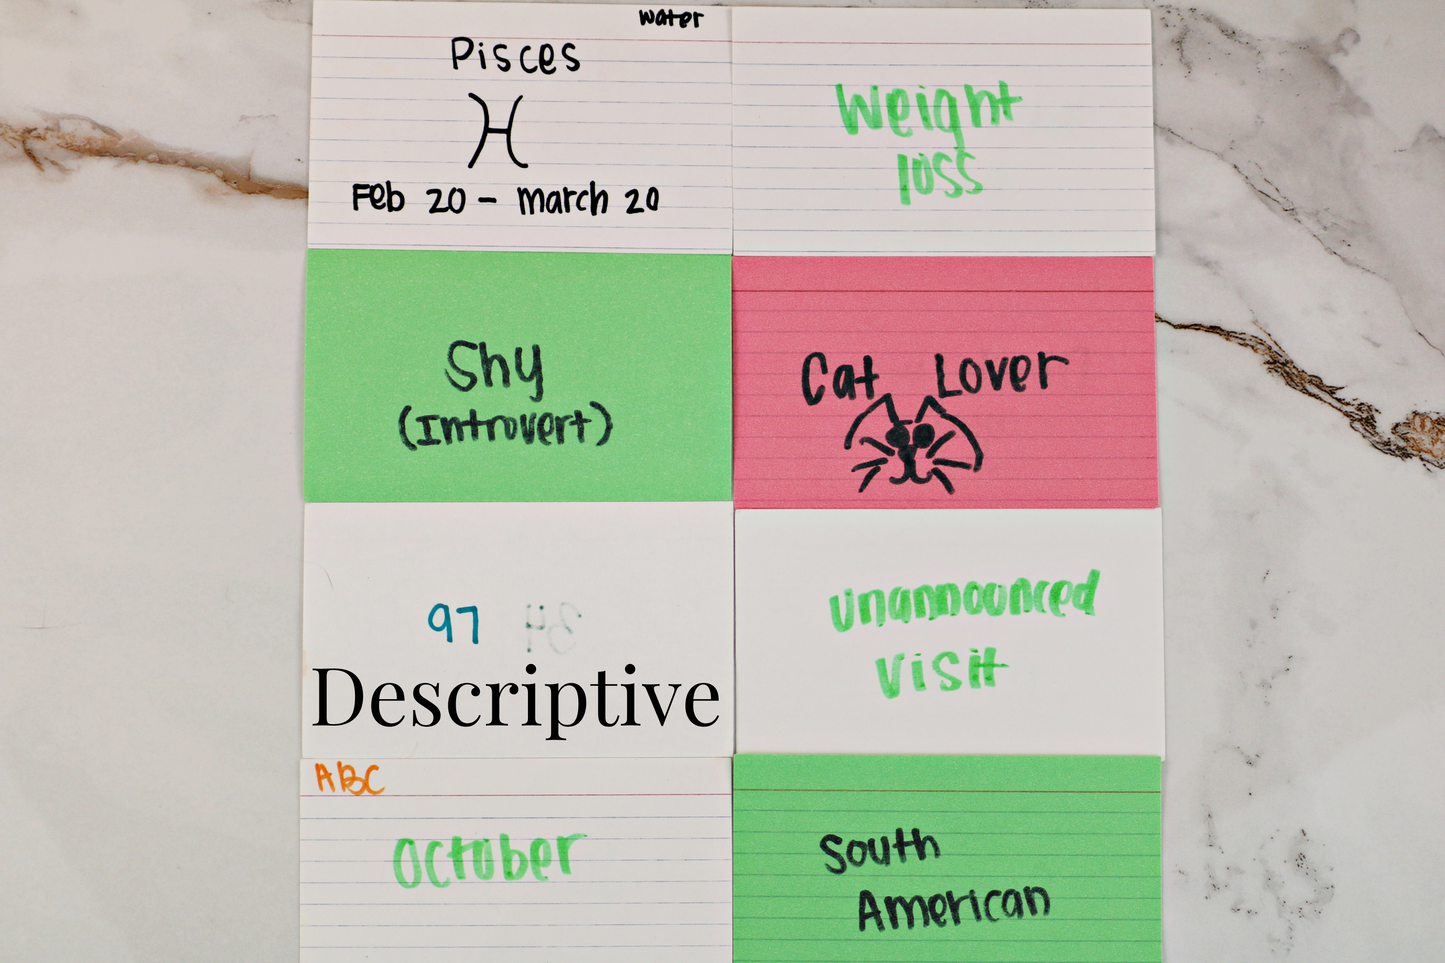 water
Pisces
Feb 20 - March 20
Weight
loss
Shy
(Introvert)
Cat Lover
97
Descriptive
unannounced
visit
ABC
October
South
American